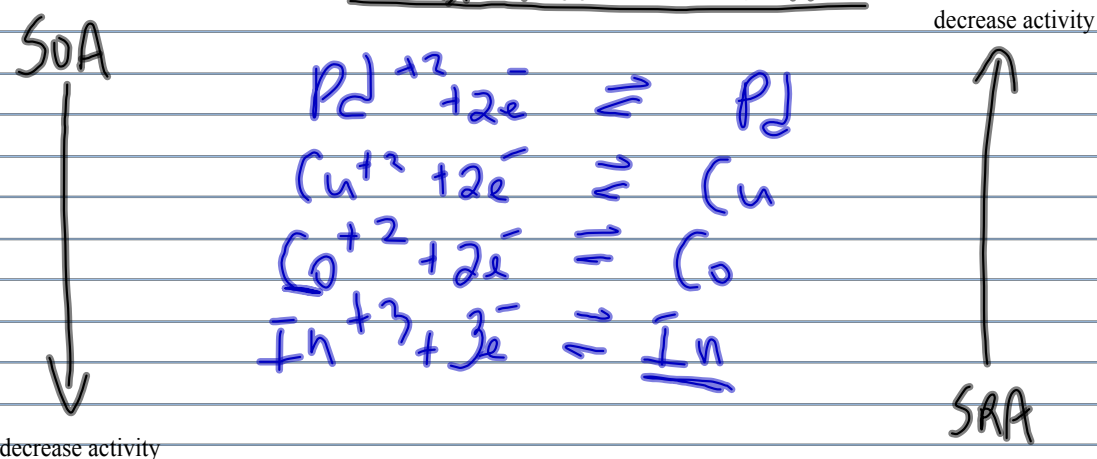 decrease activity
SOA
Pd⁺² + 2e⁻ ⇌ Pd
Cu⁺² + 2e⁻ ⇌ Cu
Co⁺² + 2e⁻ ⇌ Co
In⁺³ + 3e⁻ ⇌ In
SRA
decrease activity